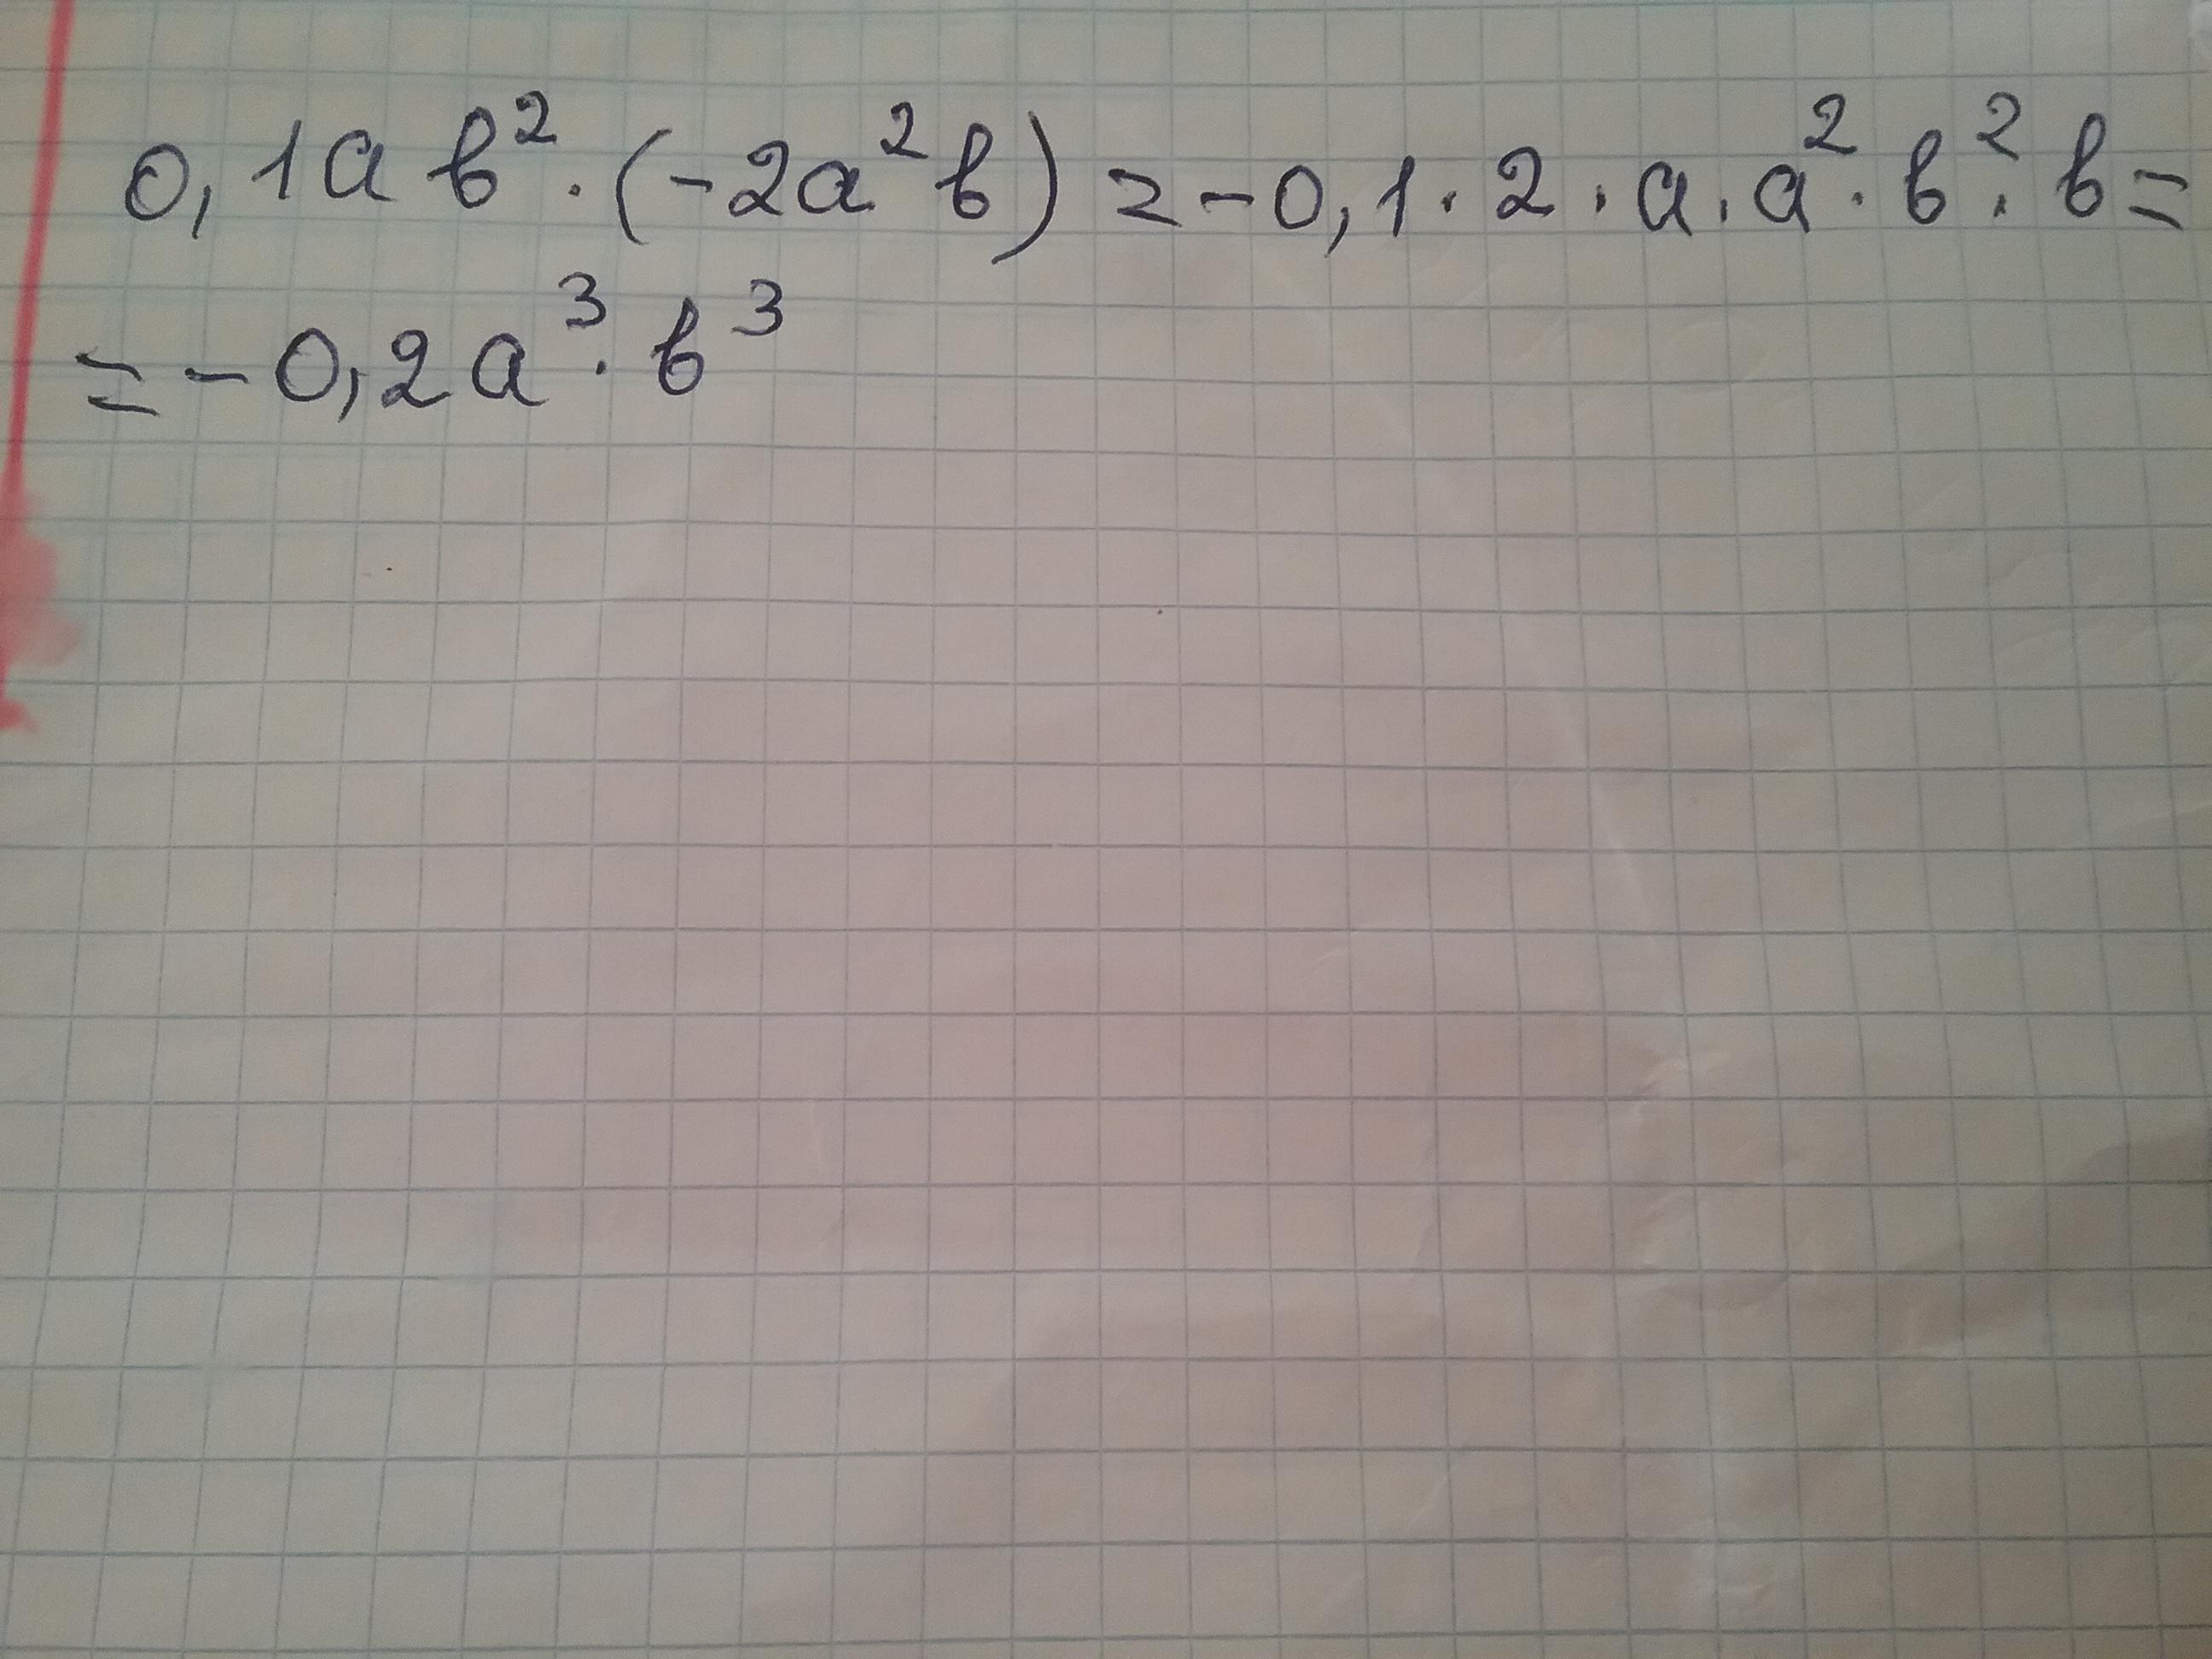 0,1ab² · (-2a²b) = -0,1 · 2 · a · a² · b² · b =
= -0,2a³ · b³